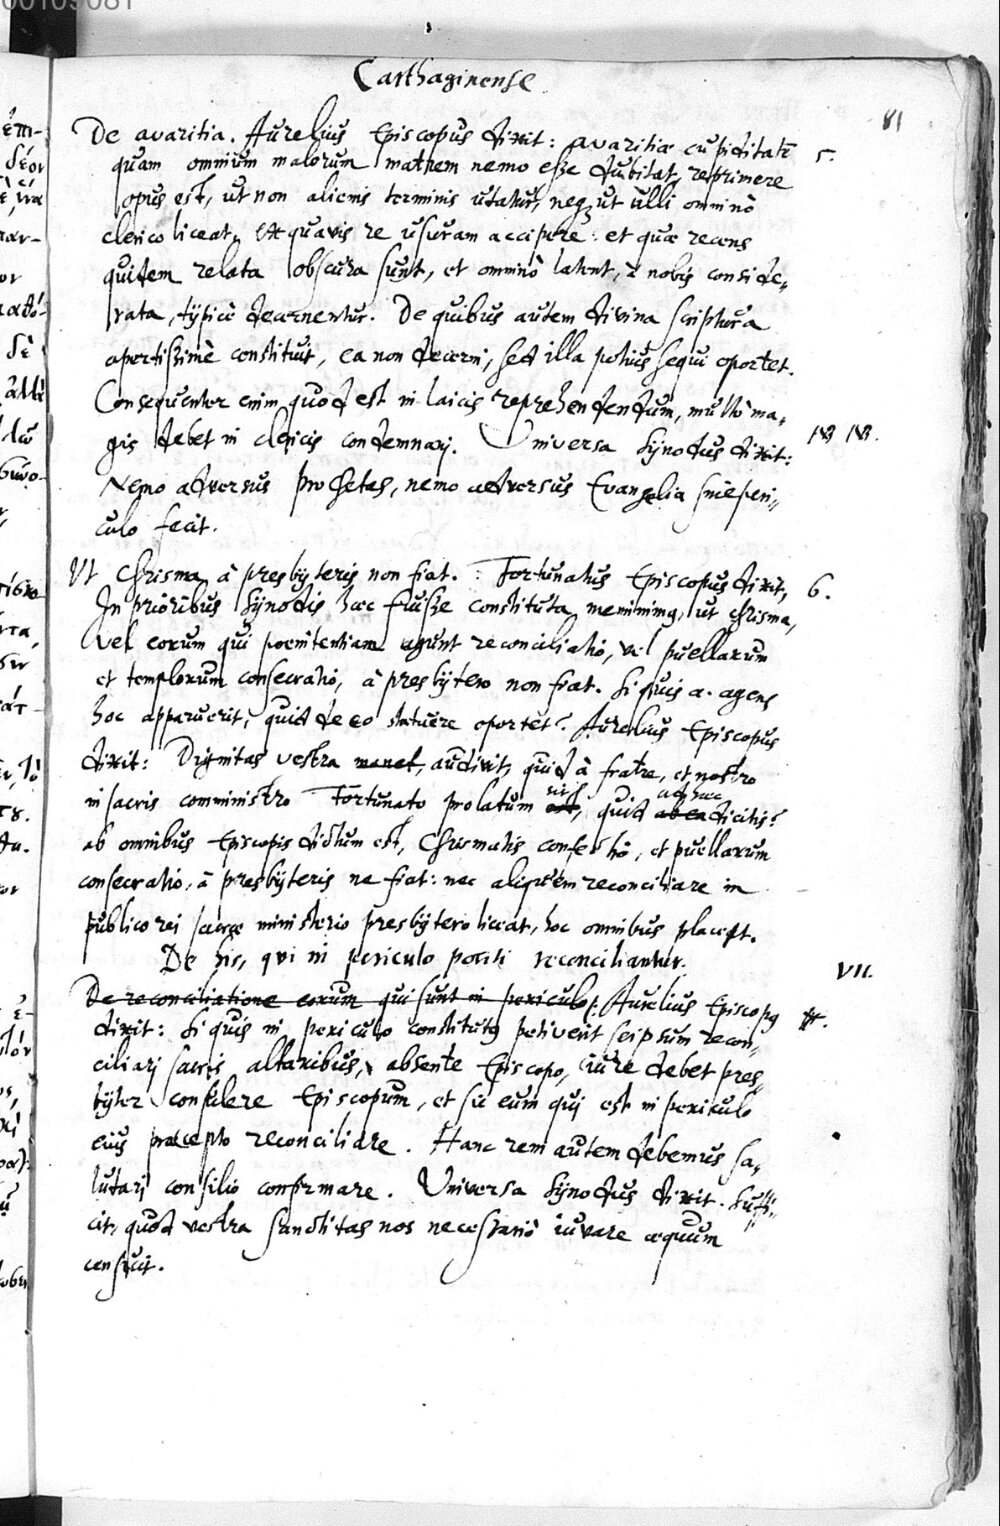 00109081
Carthaginense
81
De avaritia. Aurelius Episcopus dixit: avaritiæ cupiditatē 5.
quam omnium malorum matrem nemo esse dubitat, reprimere
opus est, ut non alienis terminis utatur, neq; ut ulli omninò
clerico liceat, de quavis re usuram accipere: et quæ recens
quidem relata obscura sunt, et omninò latent, à nobis conside,,
rata, typicè decernentur. De quibus autem divina scriptura
apertissimè constituit, ea non decerni, sed illa potius sequi oportet.
Consequenter enim quod est in laicis reprehendendum, multò ma,,
gis debet in clericis condemnari. Universa synodus dixit: NB NB.
Nemo adversus prophetas, nemo adversus Evangelia sine peri,,
culo fecit.
Ut Chrisma à presbyteris non fiat. Fortunatus Episcopus dixit, 6.
In prioribus synodis hæc fuisse constituta, meminimq, ut chrisma,
vel eorum qui poenitentiam agunt reconciliatio, vel puellarum
et templorum consecratio, à presbytero non fiat. Si quis a. agens
hoc apparuerit, quid de eo statuere oportet? Aurelius Episcopus
dixit: Dignitas vestra manet, audivit, quid à fratre, et nostro
in sacris comministro Fortunato prolatum sit est, quid ad hæc ab ea dicitis?
ab omnibus Episcopis dictum est, Chrismatis confectio, et puellarum
consecratio, à presbyteris ne fiat: nec aliquem reconciliare in
publico rei sacræ ministerio presbytero liceat, hoc omnibus placet.
De his, qui in periculo positi reconciliantur. VII.
De reconciliatione eorum qui sunt in periculo. Aurelius Episcopq
dixit: Si quis in periculo constitutq petiverit seipsum recon,,
ciliari sacris altaribus, absente Episcopo, iure debet pres,,
byter consulere Episcopum, et sic eum qui est in periculo
eius præcepto reconciliare. Hanc rem autem debemus sa,,
lutari consilio confirmare. Universa synodus dixit. Suffi,,
cit, quod vestra sanctitas nos necessariò iuvare æquum
censuit.